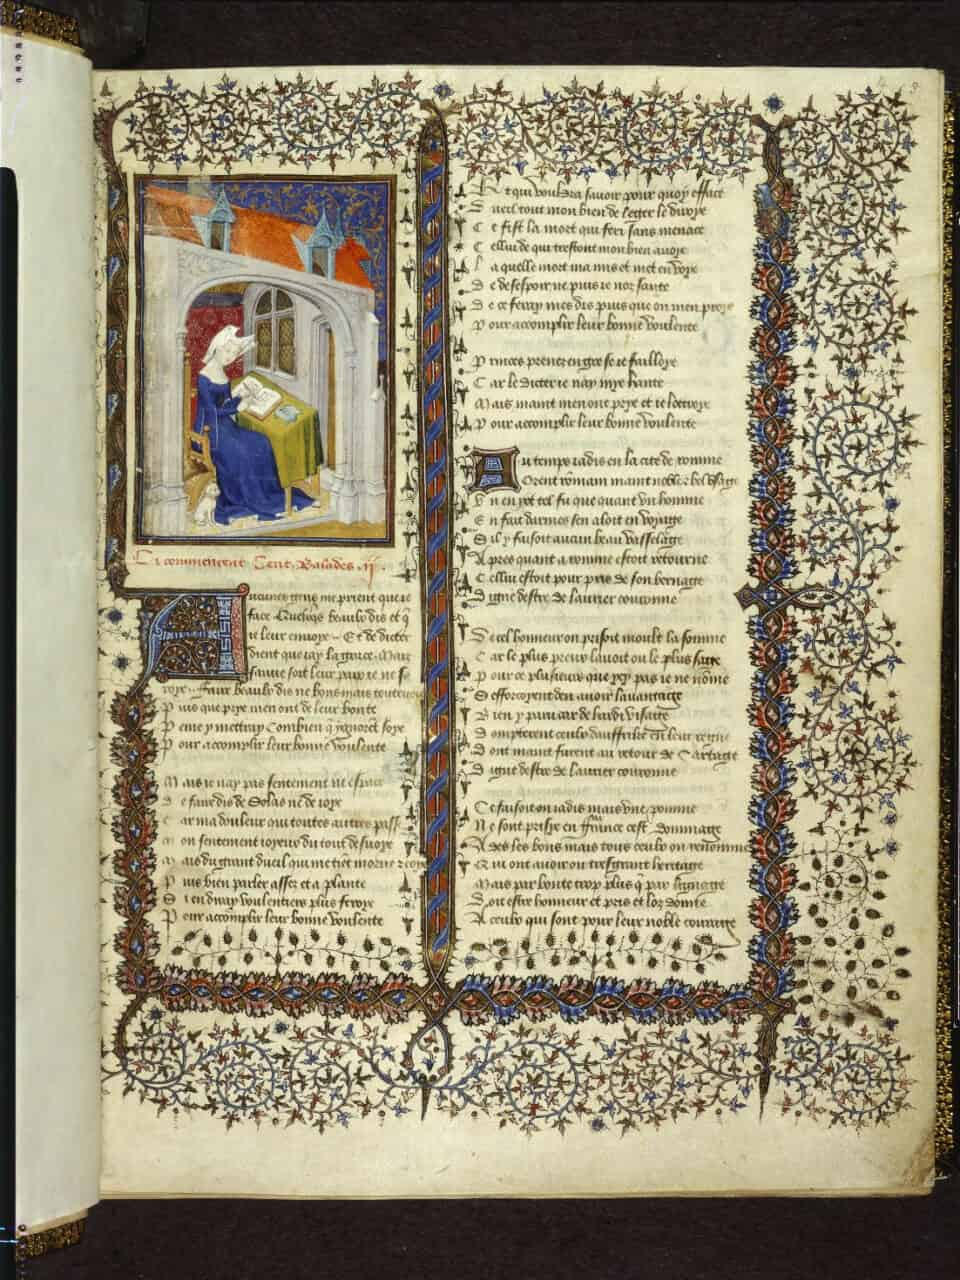 Ci commencent Cent Balades .ii.
Aucunes gens me prient que ie
face Aucuns beaulx dis et q̄
ie leur envoye Et de dicter
dient que iay la grace Mais
sauve soit leur paix ie ne s
roye Faire beaulx dis ne bons mais toutevoie
Puis que prye men ont de leur bonte
Peine y mettray Combien q̄ ygnorēt soye
Pour acomplir leur bonne voulente
Mais ie nay pas sentement ne espace
De faire dis de Solas ne de ioye
Car ma douleur qui toutes autres passe
Mon sentement ioyeux du tout desvoye
Mais du grant dueil qui me tient morne et coye
Puis bien parler assez et a plante
Si en diray voulentiers plus feroye
Pour acōplir leur bonne voulente
Et qui vouldra savoir pour quoy efface
Dueil tout mon bien de legier le diroye
Ce fist la mort qui feri sans menace
Cellui de qui trestout mon bien avoye
Laquelle mort ma mis et met en voye
De desespoir ne puis ie noz sante
De ce feray mes dis puis que on men proye
Pour acomplir leur bonne voulente
Princes prenez en gre se ie failloye
Car le ditter ie nay mye hante
Mais maint men ont prye et ie lottroye
Pour acomplir leur bonne voulente
Au temps iadis en la cite de romme
Orent romain maint noble bel usage
Un en yot tel fu que quant un homme
En fait darmes sen aloit en voyage
Sil y faisoit aucun beau vasselage
Apres quant a romme estoit retourne
Cellui estoit pour pris de son bernage
Digne destre de laurier couronne
De cel honneur on prisoit moult la somme
Car le plus preux lavoit ou le plus sage
Pour ce plusieurs que yey pas ie ne nōme
Sefforcoyent den avoir lavantage
Bien y parut car de hardi visage
Dompterent ceulx dauffrike en leur regne
Dont maint furent au retour de Cartage
Digne destre de laurier couronne
Ce faisoit on iadis mais une pomme
Ne sont prisie en france cest dommage
Ades les bons mais tous ceulx on renomme
Qui ont avoir ou tresgrant heritage
Mais par bonte trop plus q̄ par lignage
Doit estre honneur et pris et loz donne
A ceulx qui sont pour leur noble courage